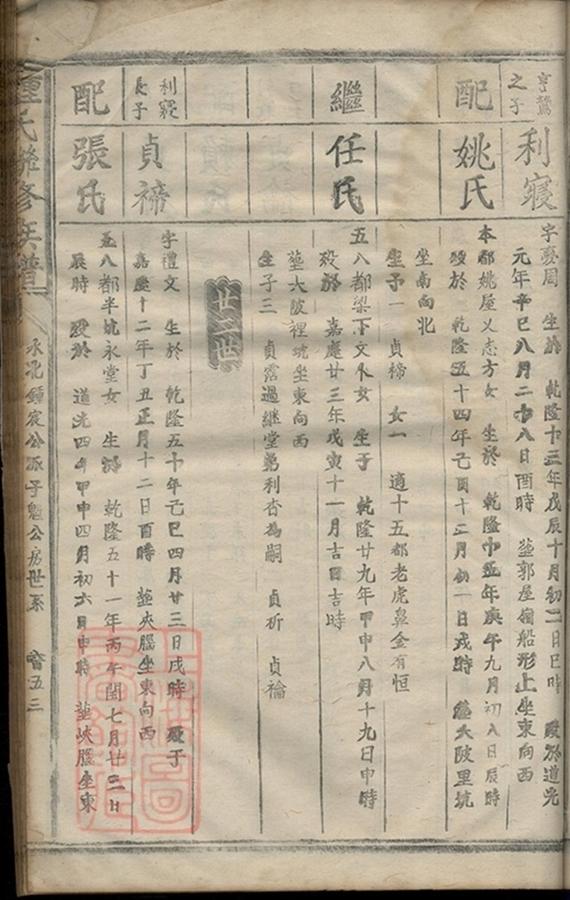 亨鰲
之子
利寢
字憂周 生於 乾隆十三年戊辰十月初二日巳時 歿於道光
元年辛巳八月二十八日酉時 塟郭屋嶺船形上坐東向西
配
姚氏
本都姚屋乂志方女 生於 乾隆十五年庚午九月初八日辰時
歿於 乾隆五十四年己酉十二月初一日戌時 塟大陂里坑
坐南向北
生子一 貞禘 女一 適十五都老虎鼻金有恒
繼
任氏
五八都梁下文 女 生于 乾隆廿九年甲申八月十九日申時
歿於 嘉慶廿三年戊寅十一月吉日吉時
塟大陂裡坑坐東向西
生子三 貞露過繼堂弟利杏為嗣 貞祈 貞禴
廿二世
利寢
長子
貞禘
字禮文 生於 乾隆五十年乙巳四月廿三日戌時 歿于
嘉慶十二年丁丑正月十二日酉時 塟峽腦坐東向西
配
張氏
五八都半坑永堂女 生於 乾隆五十一年丙午閏七月廿三日
辰時 歿於 道光四年甲申四月初六日申時 塟峽腦坐東
鍾氏聯修族譜
永北鍾宸公派子魁公房世系 會五三